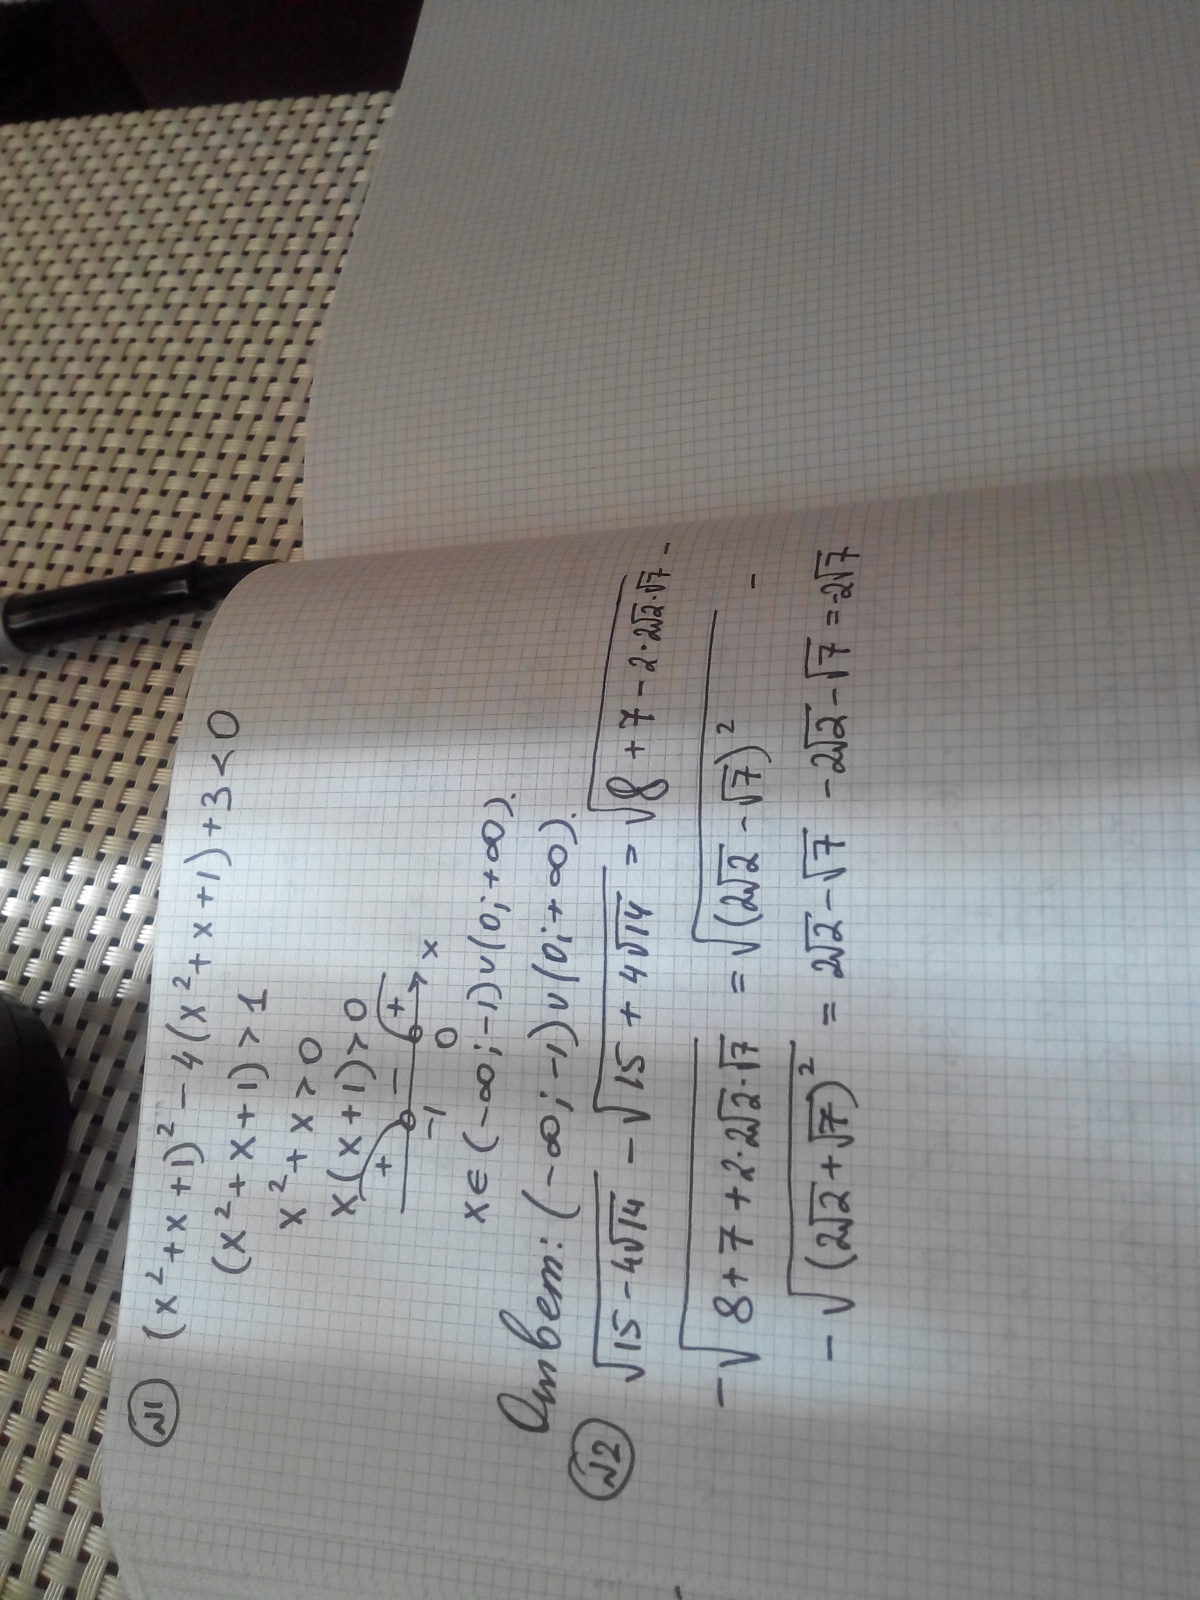 №1 (x² + x + 1)² - 4(x² + x + 1) + 3 < 0
(x² + x + 1) > 1
x² + x > 0
x(x + 1) > 0
+ - + x
-1 0
x ∈ (-∞; -1) ∪ (0; +∞).
Ответ: (-∞; -1) ∪ (0; +∞).
№2 √(15 - 4√14) - √(15 + 4√14) = √(8 + 7 - 2·2√2·√7) -
- √(8 + 7 + 2·2√2·√7) = √((2√2 - √7)²) -
- √((2√2 + √7)²) = 2√2 - √7 - 2√2 - √7 = -2√7